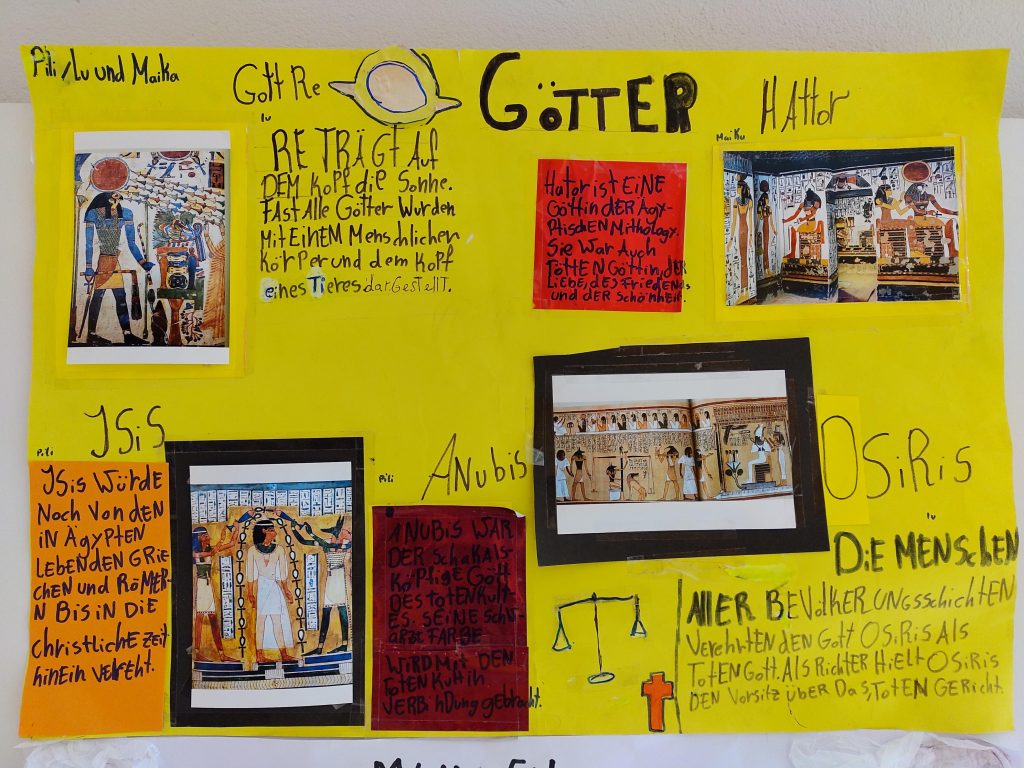 Pili/Lu und Maika
GÖTTER
Gott Re
Lu
RE TRÄGT Auf
DEM Kopf die Sonne.
FAST Alle Götter Wurden
Mit EINEM Menschlichen
Körper und dem Kopf
eines Tieres dargestellt.
HAttor
Maika
Hator ist EiNE
Göttin DER Ägy-
PtischEN Mithology.
Sie War Auch
TOTTEN Göttin, DER
Liebe, des Friedends
und DER Schönheit.
ISiS
Pili
ISis Würde
Noch Von den
iN ÄgyptEN
LEBENDEN GRIE-
CHEN und RÖMER-
N Bis iN DiE
christliche zeit
hinein verehrt.
ANubis
Pili
ANUBIS WAR
DER Schakals-
Köpfige Gott
DES TOTENKult-
ES. SEiNE Schw-
arze FARBE
WiRD Mit DEN
TOTEN Kult in
VERBiNDung gebracht.
OSiRis
Lu
DiE MENSchEN
AllER BEVölkERUNgsschichtEN
Verehrten den Gott OSiRis Als
TotEN Gott. Als RichtER HiElt OSiRis
DEN Vorsitz über DasTOTEN GERicht.